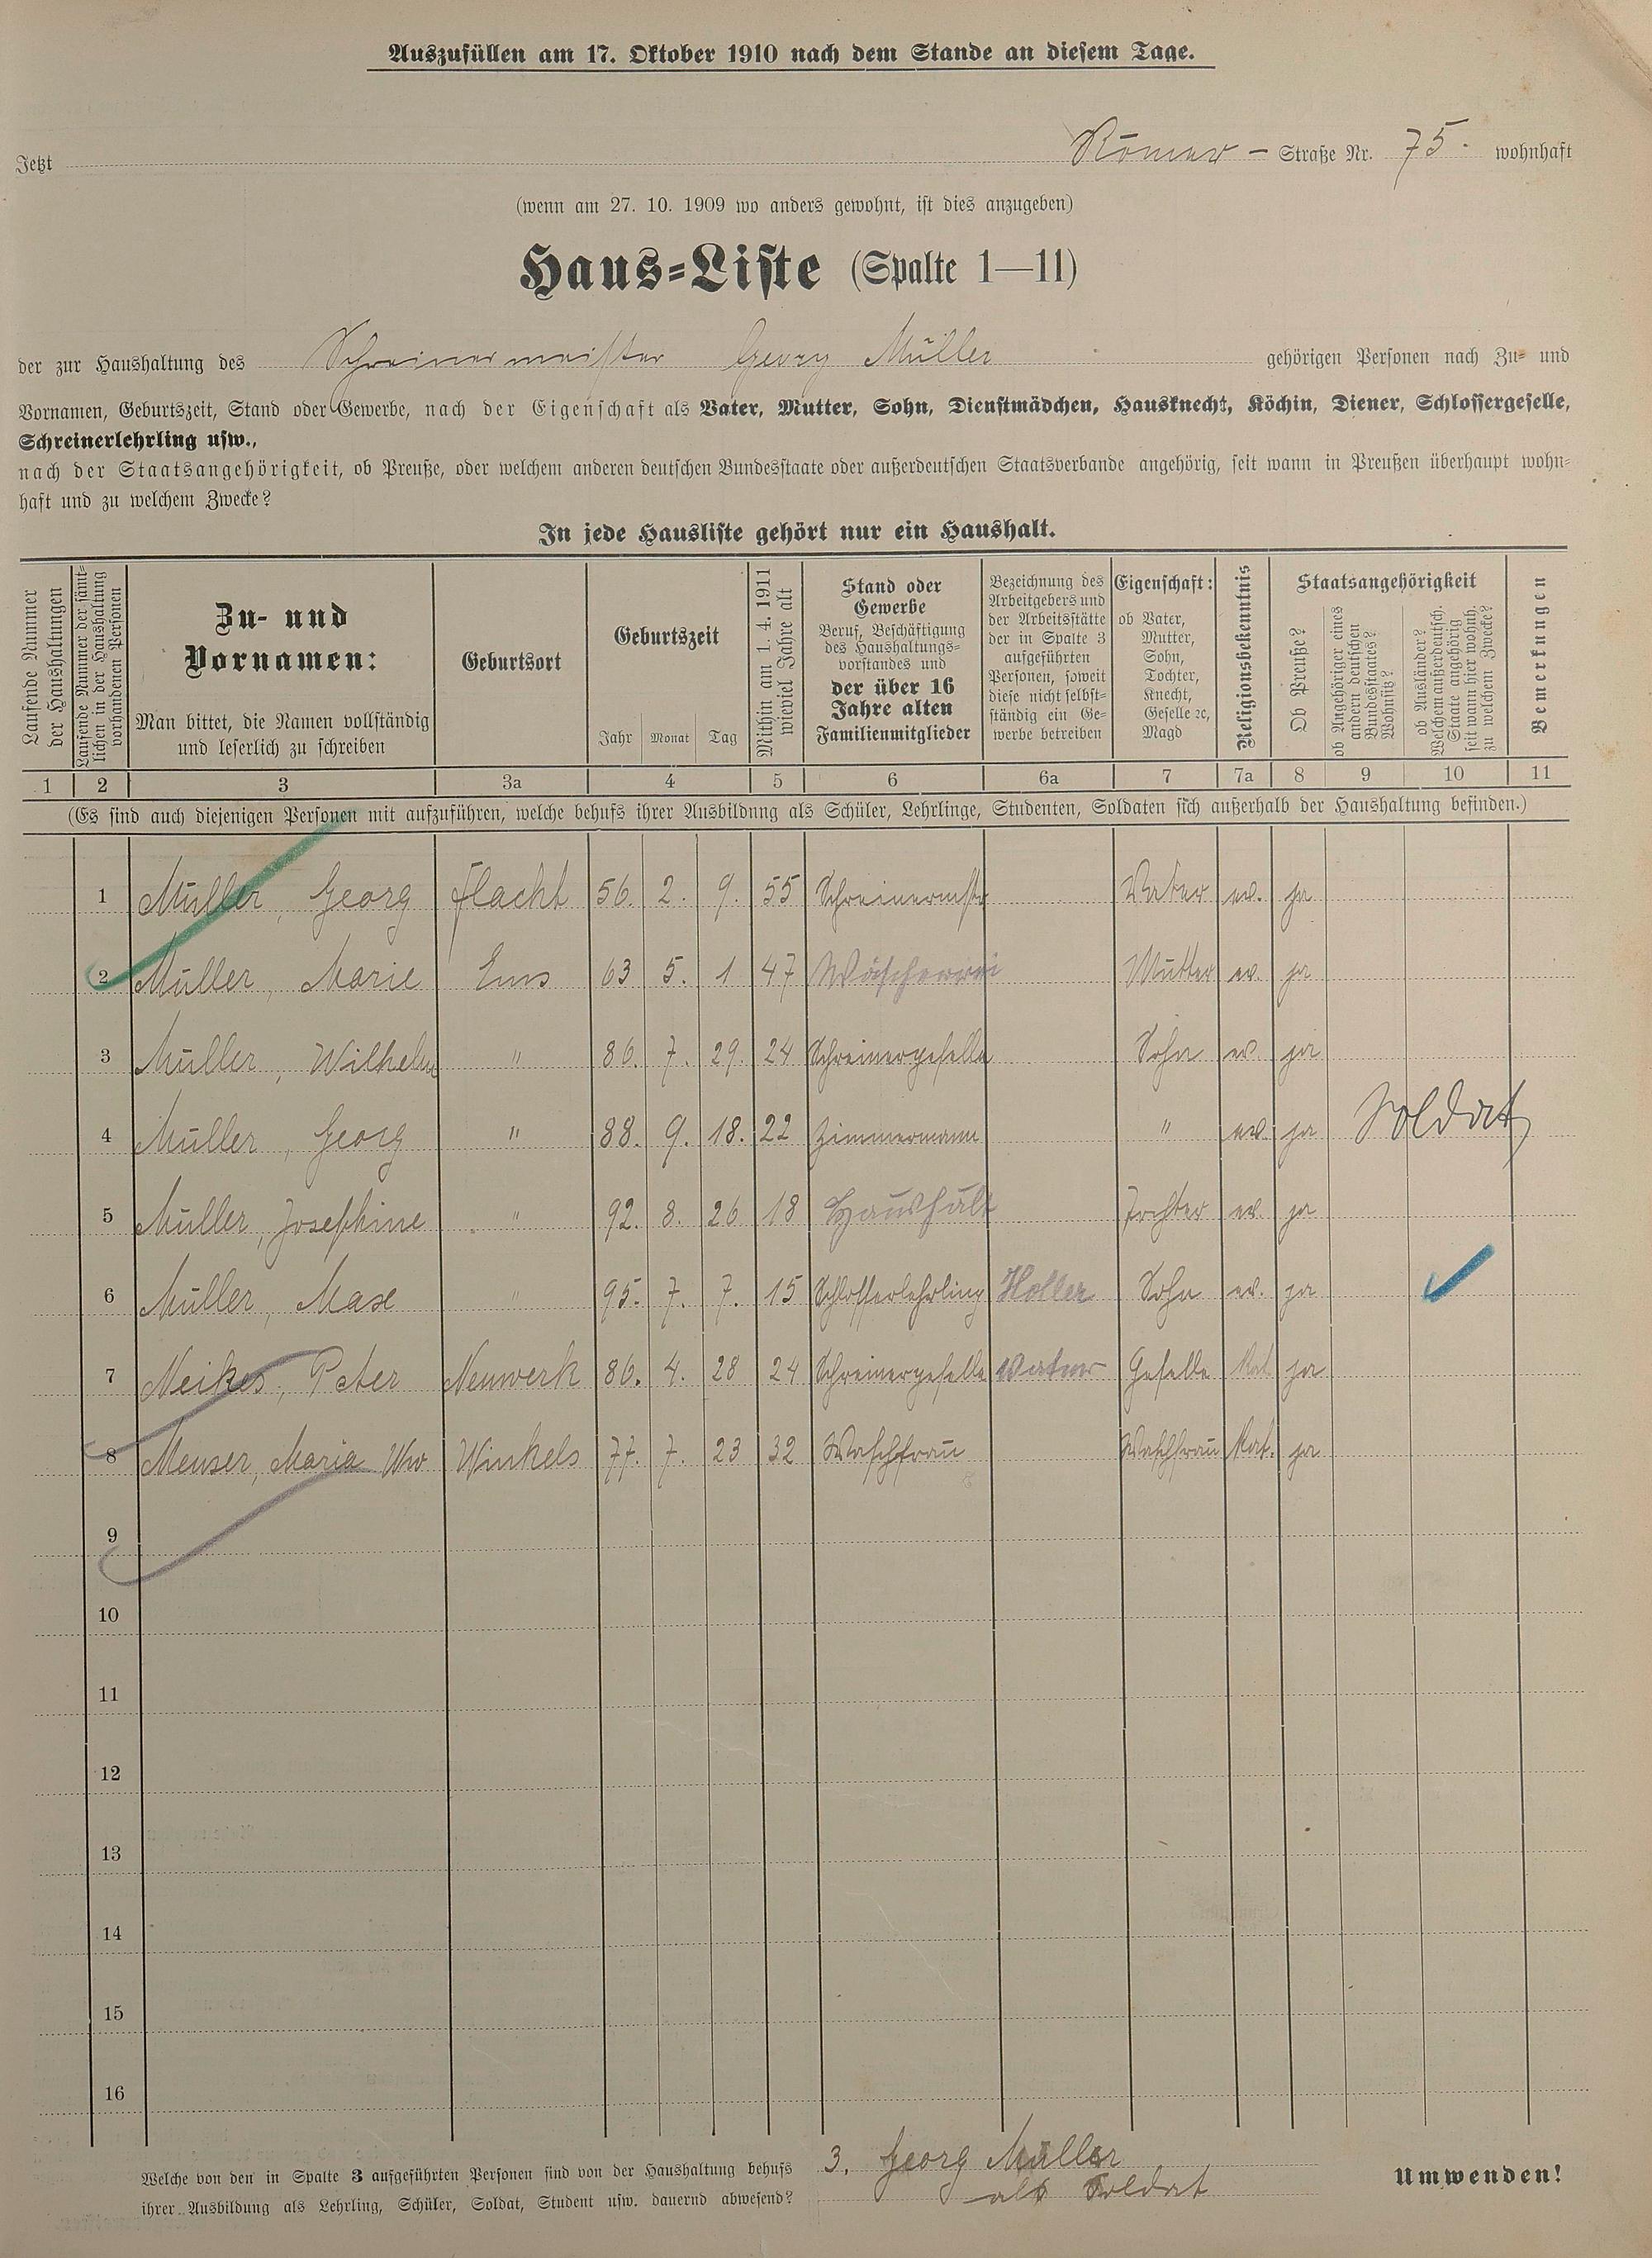 Auszufüllen am 17. Oktober 1910 nach dem Stande an diesem Tage.
Jetzt Römer - Straße Nr. 75. wohnhaft
(wenn am 27. 10. 1909 wo anders gewohnt, ist dies anzugeben)
Haus=Liste (Spalte 1—11)
der zur Haushaltung des Schreinermeister Georg Müller gehörigen Personen nach Zu= und
Vornamen, Geburtszeit, Stand oder Gewerbe, nach der Eigenschaft als Vater, Mutter, Sohn, Dienstmädchen, Hausknecht, Köchin, Diener, Schlossergeselle,
Schreinerlehrling usw.,
nach der Staatsangehörigkeit, ob Preuße, oder welchem anderen deutschen Bundesstaate oder außerdeutschen Staatsverbande angehörig, seit wann in Preußen überhaupt wohn=
haft und zu welchem Zwecke?
In jede Hausliste gehört nur ein Haushalt.
Laufende Nummer
der Haushaltungen
Laufende Nummer der sämt=
lichen in der Haushaltung
vorhandenen Personen
Zu- und
Vornamen:
Man bittet, die Namen vollständig
und leserlich zu schreiben
Geburtsort
Geburtszeit
Jahr Monat Tag
Mithin am 1. 4. 1911
wieviel Jahre alt
Stand oder
Gewerbe
Beruf, Beschäftigung
des Haushaltungs=
vorstandes und
der über 16
Jahre alten
Familienmitglieder
Bezeichnung des
Arbeitgebers und
der Arbeitsstätte
der in Spalte 3
aufgeführten
Personen, soweit
diese nicht selbst=
ständig ein Ge=
werbe betreiben
Eigenschaft:
ob Vater,
Mutter,
Sohn,
Tochter,
Knecht,
Geselle ꝛc,
Magd
Religionsbekenntnis
Staatsangehörigkeit
Ob Preuße?
ob Angehöriger eines
andern deutschen
Bundesstaates?
Wohnsitz?
ob Ausländer?
Welchem außerdeutsch.
Staate angehörig
seit wann hier wohnh.
zu welchem Zwecke?
Bemerkungen
1 2 3 3a 4 5 6 6a 7 7a 8 9 10 11
(Es sind auch diejenigen Personen mit aufzuführen, welche behufs ihrer Ausbildung als Schüler, Lehrlinge, Studenten, Soldaten sich außerhalb der Haushaltung befinden.)
1 Müller, Georg Flacht 56. 2. 9. 55 Schreinermstr Vater ev. ja
2 Müller, Marie Ems 63 5. 1 47 Wäscherei Mutter ev. ja
3 Müller, Wilhelm " 86. 7. 29. 24 Schreinergeselle Sohn ev ja
4 Müller, Georg " 88. 9. 18. 22 Zimmermann " ev. ja Soldat
5 Müller, Josephine " 92. 8. 26 18 Haushalt Tochter ev. ja
6 Müller, Max " 95. 7. 7. 15 Schlosserlehrling Holler Sohn ev. ja
7 Neikes, Peter Neuwerk 86. 4. 28 24 Schreinergeselle Vater Geselle Kat. ja
8 Menser, Maria Ww Winkels 77. 7. 23 32 Waschfrau Waschfrau Kat. ja
9
10
11
12
13
14
15
16
Welche von den in Spalte 3 aufgeführten Personen sind von der Haushaltung behufs
ihrer Ausbildung als Lehrling, Schüler, Soldat, Student usw. dauernd abwesend?
3. Georg Müller
als Soldat
Umwenden!